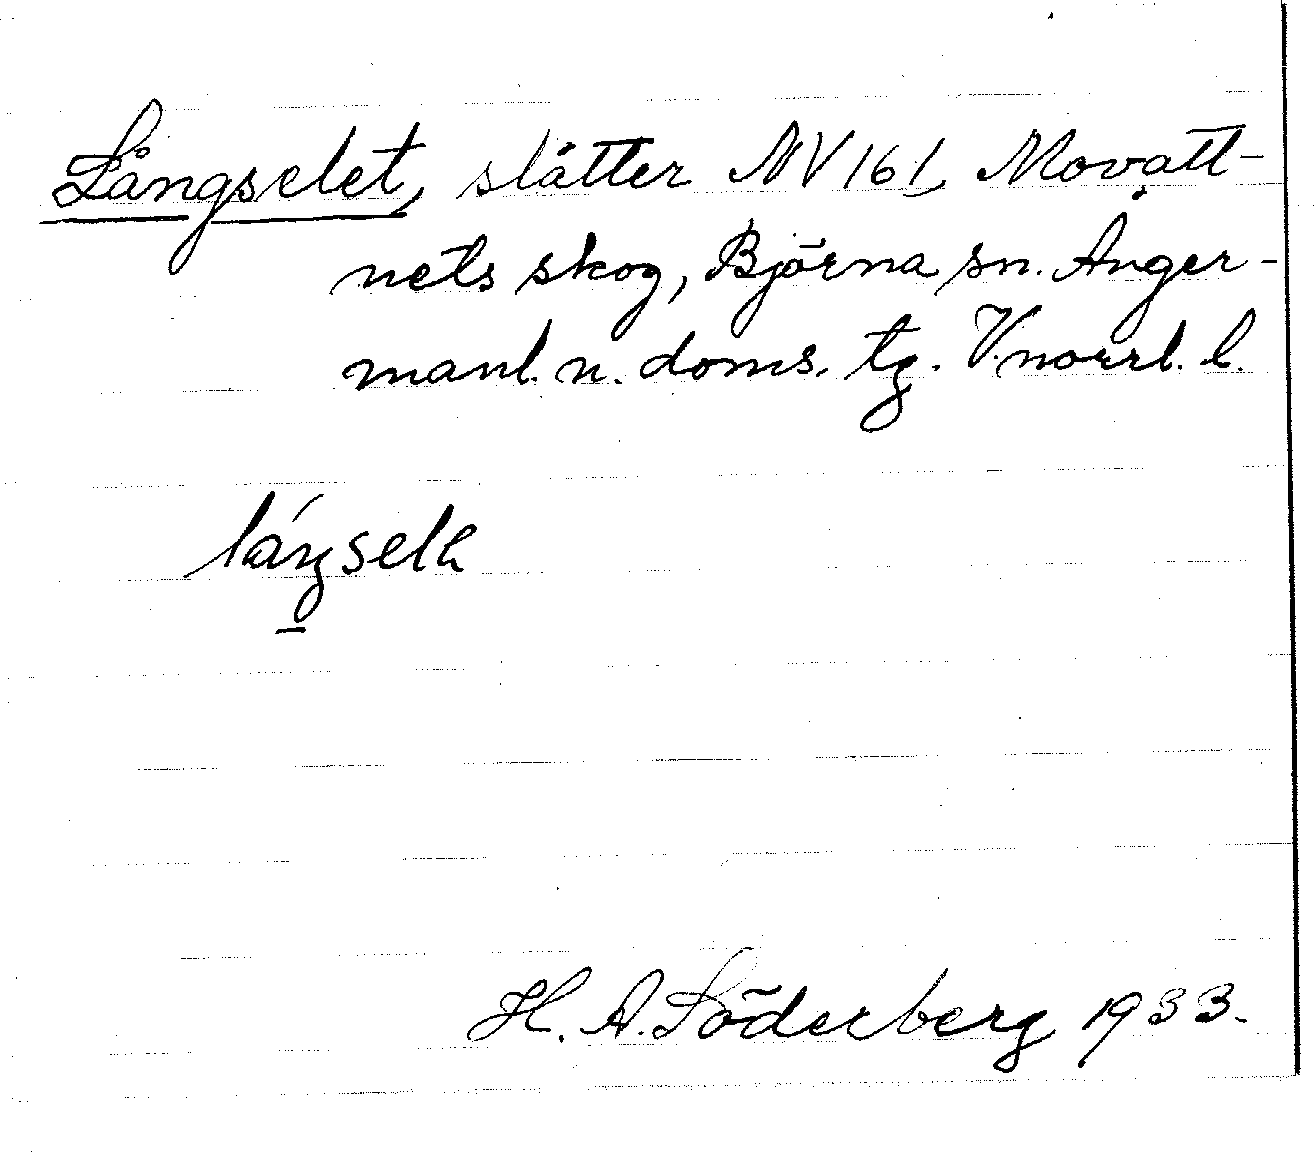 Långselet, slåtter NV 161, Movatt-
nets skog, Björna sn. Ånger-
manl. n. doms. tg. V.norrl. l.
H. A. Söderberg 1933.